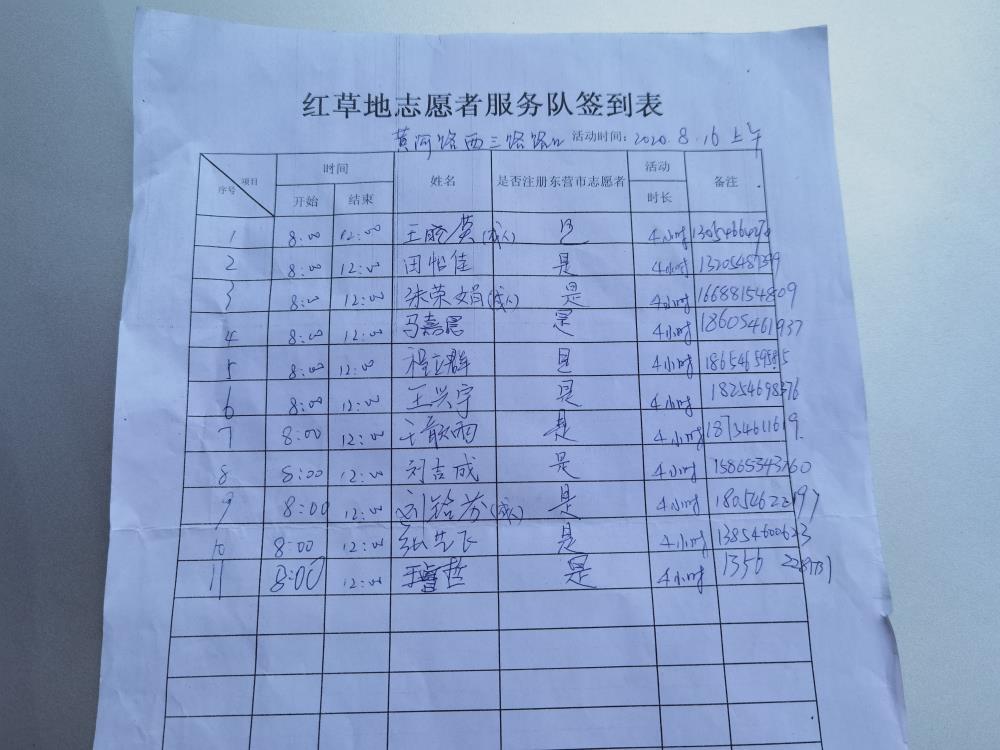 红草地志愿者服务队签到表
黄河路西三路路口 活动时间：2020.8.16上午
序号 项目 时间 姓名 是否注册东营市志愿者 活动 备注
开始 结束 时长
1 8:00 12:00 王晓英(成人) 是 4小时
2 8:00 12:00 田怡佳 是 4小时
3 8:00 12:00 朱荣娟(成人) 是 4小时 16688154809
4 8:00 12:00 马嘉恩 是 4小时 18605461937
5 8:00 12:00 程立群 是 4小时
6 8:00 12:00 王兴宇 是 4小时 18254698376
7 8:00 12:00 于歆雨 是 4小时
8 8:00 12:00 刘吉成 是 4小时 15865343760
9 8:00 12:00 是 4小时
10 8:00 12:00 张艺飞 是 4小时
11 8:00 12:00 于睿哲 是 4小时